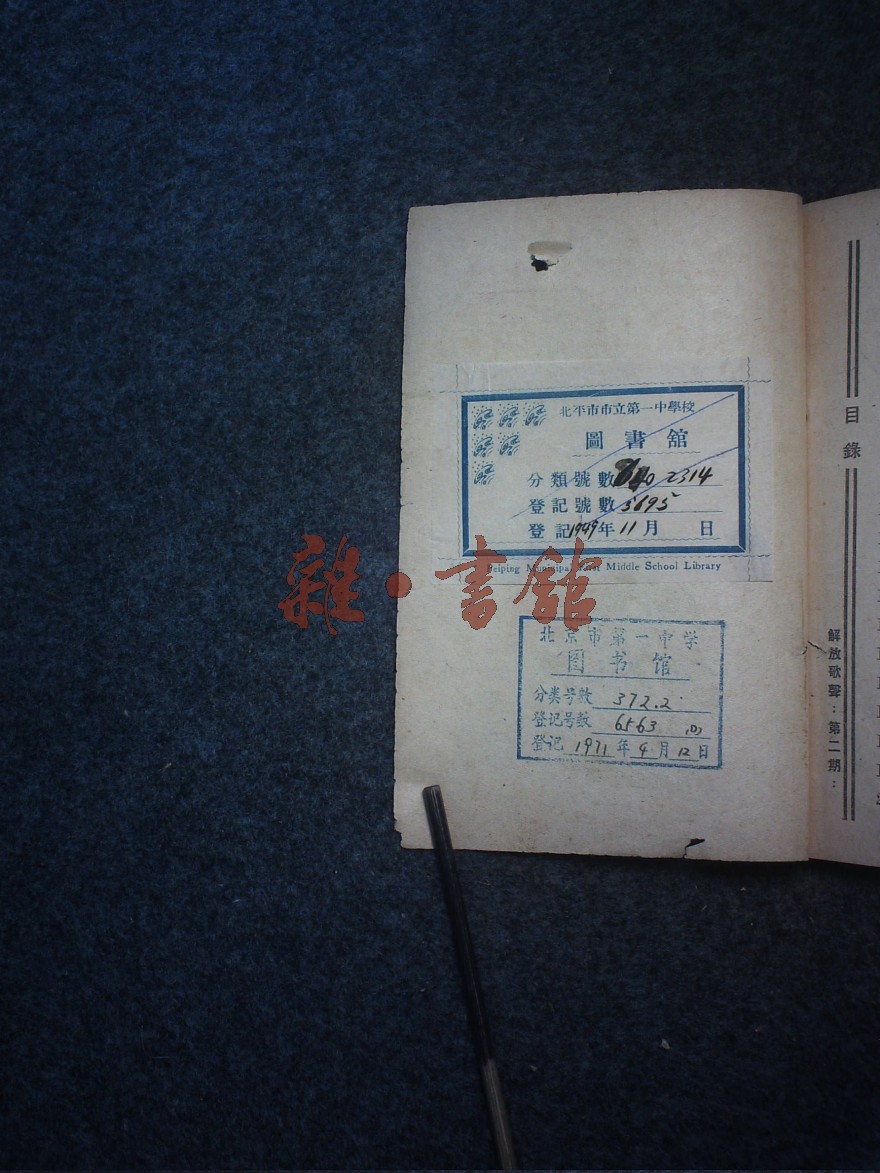 北平市市立第一中學校
圖書舘
分類號數 840 2314
登記號數 5695
登記1949年11月 日
Peiping Municipal First Middle School Library
雜·書舘
北京市第一中学
图书馆
分类号数 372.2
登记号数 6563 (1)
登记 1971年9月12日
目錄
解放歌聲：第二期：